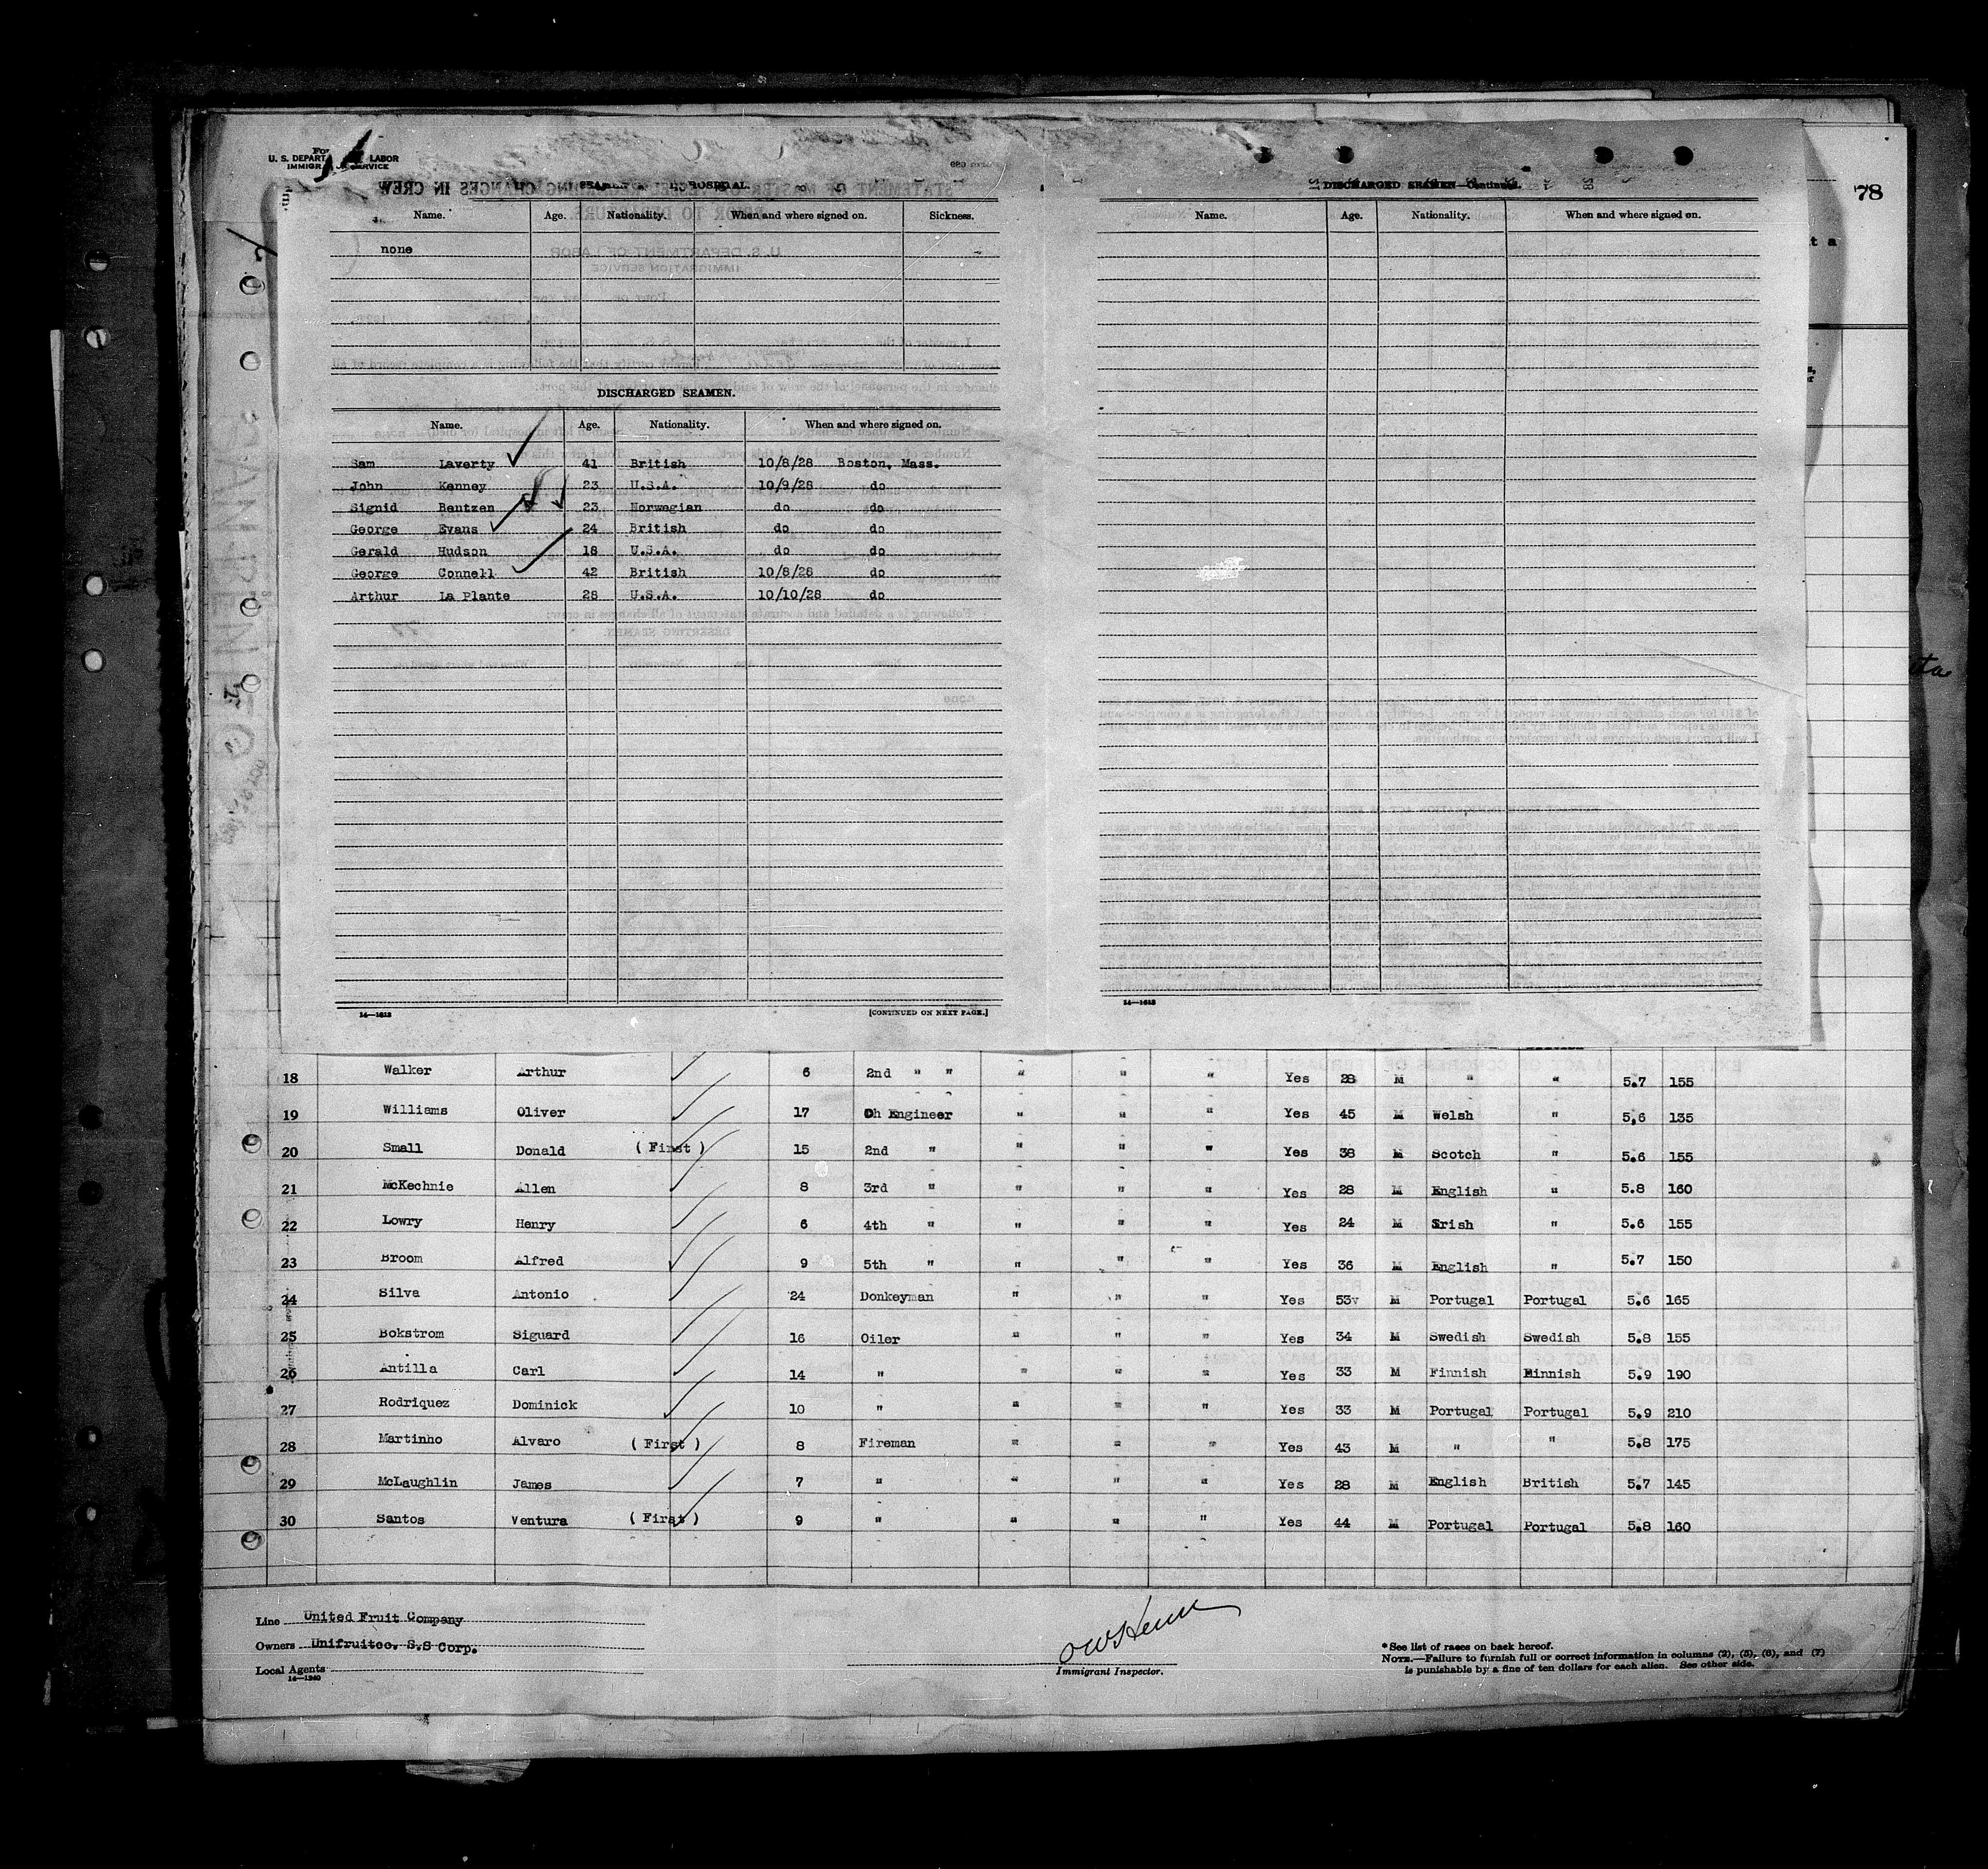 U. S. DEPART LABOR
IMMIGR SERVICE
78
t a
DISCHARGED SEAMEN—Continued.
Name. Age. Nationality. When and where signed on. Sickness.
none
Name. Age. Nationality. When and where signed on.
DISCHARGED SEAMEN.
Name. Age. Nationality. When and where signed on.
Sam Laverty 41 British 10/8/28 Boston, Mass.
John Kenney 23 U.S.A. 10/9/28 do
Signid Bentzen 23 Norwegian do do
George Evans 24 British do do
Gerald Hudson 18 U.S.A. do do
George Connell 42 British 10/8/28 do
Arthur La Plante 28 U.S.A. 10/10/28 do
14—1613 [CONTINUED ON NEXT PAGE.]
14—1613
18 Walker Arthur 6 2nd " " " " " Yes 28 M " " 5.7 155
19 Williams Oliver 17 Ch Engineer " " " Yes 45 M Welsh " 5,6 135
20 Small Donald ( First ) 15 2nd " " " " Yes 38 M Scotch " 5.6 155
21 McKechnie Allen 8 3rd " " " " Yes 28 M English " 5.8 160
22 Lowry Henry 6 4th " " " " Yes 24 M Irish " 5.6 155
23 Broom Alfred 9 5th " " " " Yes 36 M English " 5.7 150
24 Silva Antonio 24 Donkeyman " " " Yes 53 M Portugal Portugal 5.6 165
25 Bokstrom Siguard 16 Oiler " " " Yes 34 M Swedish Swedish 5.8 155
26 Antilla Carl 14 " " " " Yes 33 M Finnish Finnish 5.9 190
27 Rodriquez Dominick 10 " " " " Yes 33 M Portugal Portugal 5.9 210
28 Martinho Alvaro ( First ) 8 Fireman " " " Yes 43 M " " 5.8 175
29 McLaughlin James 7 " " " " Yes 28 M English British 5.7 145
30 Santos Ventura ( First ) 9 " " " " Yes 44 M Portugal Portugal 5.8 160
Line United Fruit Company
Owners Unifruitco. S.S Corp.
Local Agents
14—1240
Immigrant Inspector.
*See list of races on back hereof.
NOTE.—Failure to furnish full or correct information in columns (2), (5), (6), and (7)
is punishable by a fine of ten dollars for each alien. See other side.